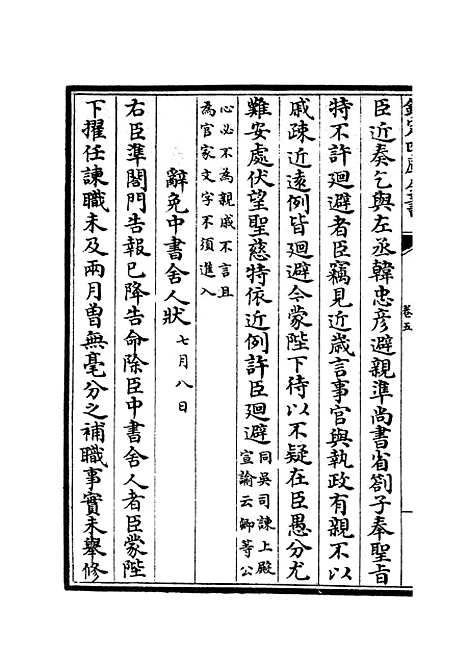 欽定四庫全書
卷五
臣近奏乞與左丞韓忠彥避親準尚書省劄子奉聖旨
特不許廻避者臣竊見近歲言事官與執政有親不以
戚疎近遠例皆廻避今蒙陛下待以不疑在臣愚分尤
難安處伏望聖慈特依近例許臣廻避同吳司諫上殿
宣諭云卿等公
心必不為親戚不言且
為官家文字不須進入
辭免中書舍人狀七月八日
右臣準閤門告報已降告命除臣中書舍人者臣蒙陛
下擢任諫職未及兩月曽無毫分之補職事實未舉修